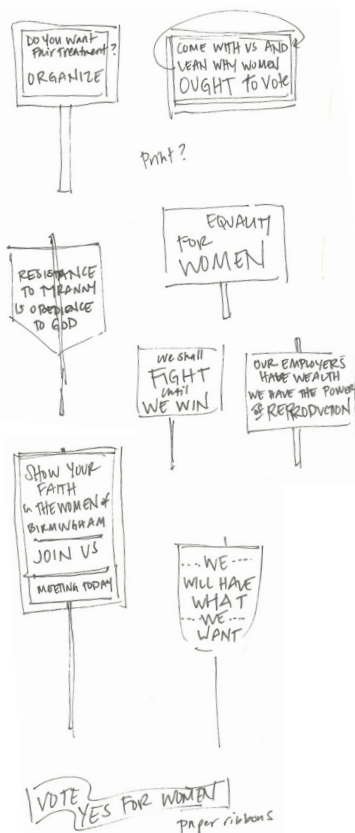 DO YOU WANT
FAIR TREATMENT?
ORGANIZE
COME WITH US AND
LEAN WHY WOMEN
OUGHT TO VOTE
Print?
EQUALITY
FOR
WOMEN
RESISTANCE
TO TYRANNY
IS OBEDIENCE
TO GOD
We shall
FIGHT
until
WE WIN
OUR EMPLOYERS
HAVE WEALTH
WE HAVE THE POWER
OF REPRODUCTION
SHOW YOUR
FAITH
in THE WOMEN of
BIRMINGHAM
JOIN US
MEETING TODAY
--- WE ---
WILL HAVE
WHAT
--- WE ---
WANT
VOTE
YES FOR WOMEN
paper ribbons